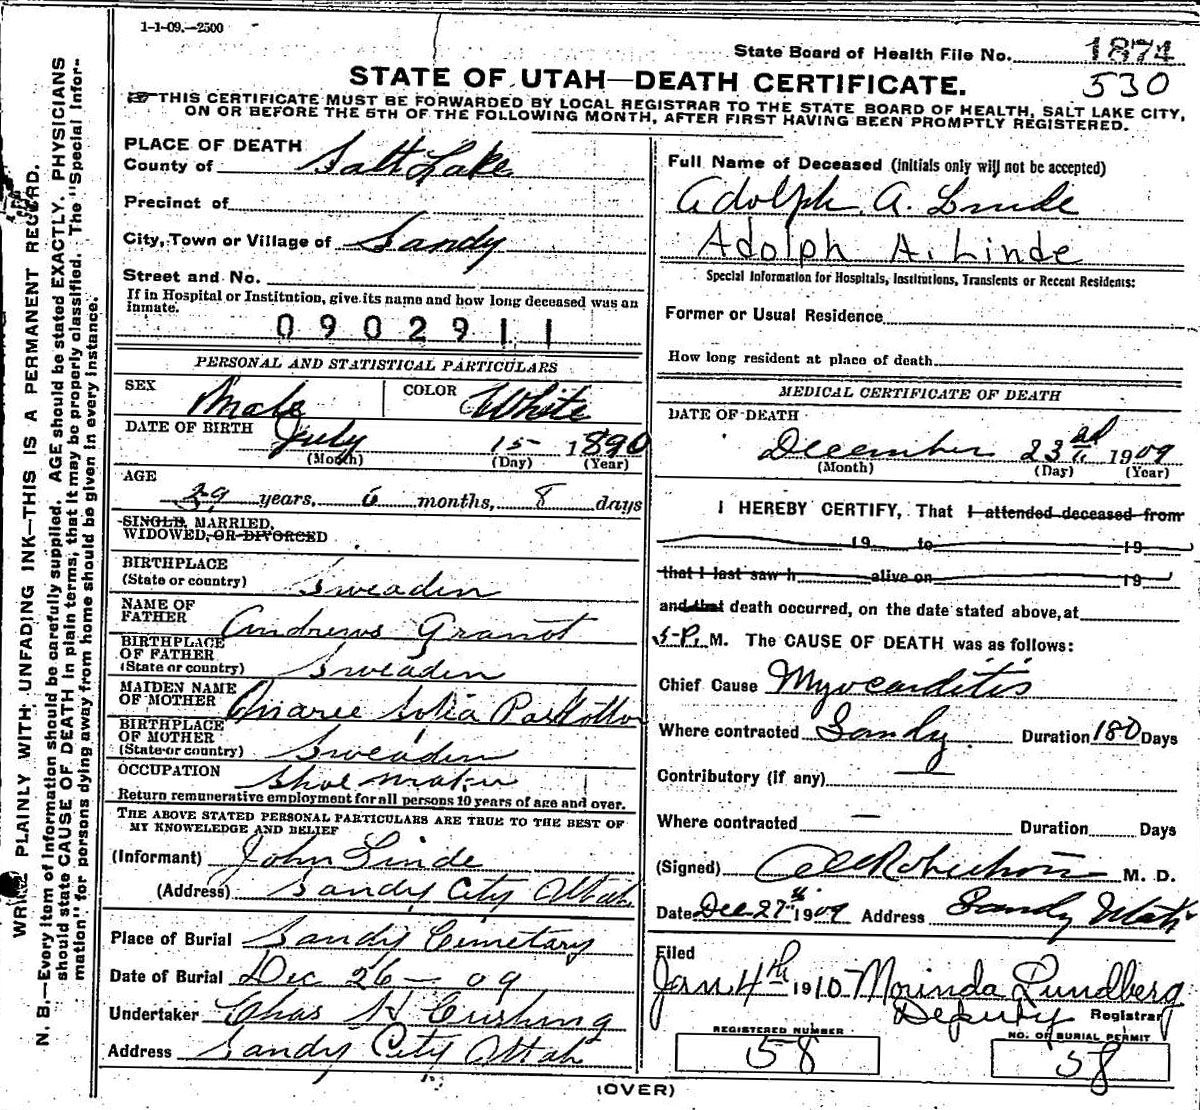 1-1-09.—2500
State Board of Health File No. 1874
530
STATE OF UTAH—DEATH CERTIFICATE.
THIS CERTIFICATE MUST BE FORWARDED BY LOCAL REGISTRAR TO THE STATE BOARD OF HEALTH, SALT LAKE CITY,
ON OR BEFORE THE 5TH OF THE FOLLOWING MONTH, AFTER FIRST HAVING BEEN PROMPTLY REGISTERED.
WRITE PLAINLY WITH UNFADING INK—THIS IS A PERMANENT RECORD.
N. B.—Every item of information should be carefully supplied. AGE should be stated EXACTLY. PHYSICIANS
should state CAUSE OF DEATH in plain terms, that it may be properly classified. The "Special Infor-
mation" for persons dying away from home should be given in every instance.
PLACE OF DEATH
County of Salt Lake
Precinct of
City, Town or Village of Sandy
Street and No.
If in Hospital or Institution, give its name and how long deceased was an
inmate.
0902911
PERSONAL AND STATISTICAL PARTICULARS
SEX Male COLOR White
DATE OF BIRTH July 15 1890
(Month) (Day) (Year)
AGE
39 years, 6 months, 8 days
SINGLE, MARRIED,
WIDOWED, OR DIVORCED
BIRTHPLACE
(State or country) Sweaden
NAME OF
FATHER Andrews Granot
BIRTHPLACE
OF FATHER
(State or country) Sweaden
MAIDEN NAME
OF MOTHER
BIRTHPLACE
OF MOTHER
(State or country) Sweaden
OCCUPATION Shoe maker
Return remunerative employment for all persons 10 years of age and over.
THE ABOVE STATED PERSONAL PARTICULARS ARE TRUE TO THE BEST OF
MY KNOWELEDGE AND BELIEF
(Informant) John Linde
(Address) Sandy City Utah
Place of Burial Sandy Cemetary
Date of Burial Dec 26—09
Undertaker Chas H Cushing
Address Sandy City Utah
Full Name of Deceased (initials only will not be accepted)
Adolph A. Linde
Adolph A. Linde
Special Information for Hospitals, Institutions, Transients or Recent Residents:
Former or Usual Residence
How long resident at place of death
MEDICAL CERTIFICATE OF DEATH
DATE OF DEATH
December 23rd 1909
(Month) (Day) (Year)
I HEREBY CERTIFY, That I attended deceased from
19 to 19
that I last saw h alive on 19
and that death occurred, on the date stated above, at
5-P. M. The CAUSE OF DEATH was as follows:
Chief Cause Myocarditis
Where contracted Sandy Duration 180 Days
Contributory (if any) —
Where contracted — Duration Days
(Signed) Robertson M. D.
Date Dec 27th 1909 Address Sandy Utah
Filed
Jan 4th 1910 Morinda Lundberg
Deputy Registrar
REGISTERED NUMBER
58
NO. OF BURIAL PERMIT
58
(OVER)